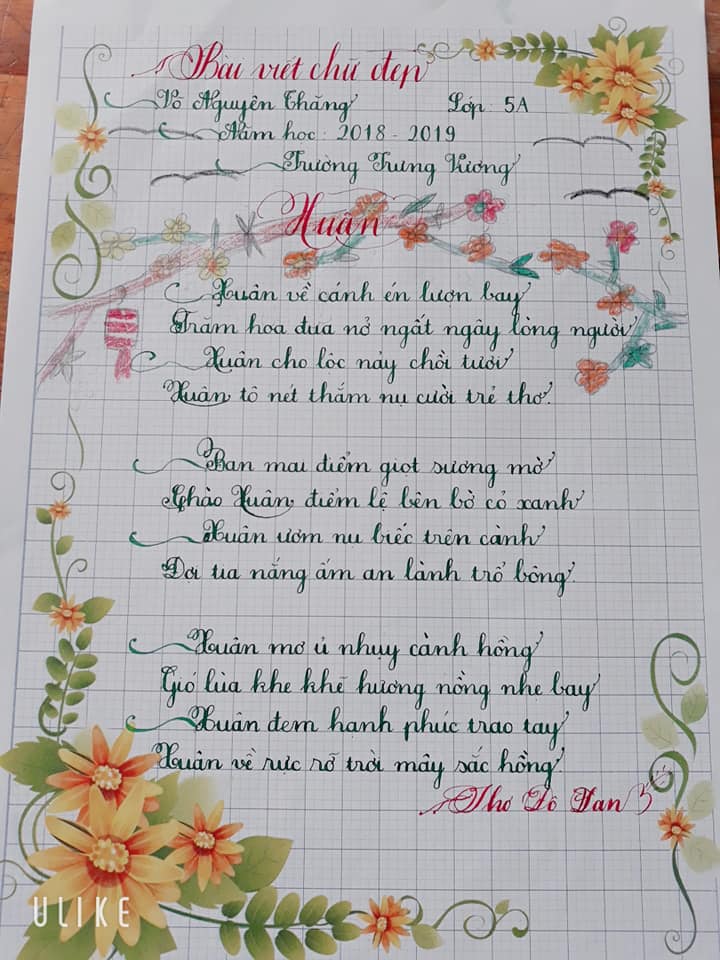 Bài viết chữ đẹp
Võ Nguyên Thăng Lớp: 5A
Năm học: 2018 - 2019
Trường Trưng Vương
Xuân
Xuân về cánh én lượn bay
Trăm hoa đua nở ngất ngây lòng người
Xuân cho lộc nảy chồi tươi
Xuân tô nét thắm nụ cười trẻ thơ.
Ban mai điểm giọt sương mờ
Chào Xuân, điểm lệ bên bờ cỏ xanh
Xuân ươm nụ biếc trên cành
Đợi tia nắng ấm an lành trổ bông.
Xuân mơ ủ nhụy cành hồng
Gió lùa khe khẽ hương nồng nhẹ bay
Xuân đem hạnh phúc trao tay
Xuân về rực rỡ trời mây sắc hồng.
Thơ Tô Đan
ULIKE